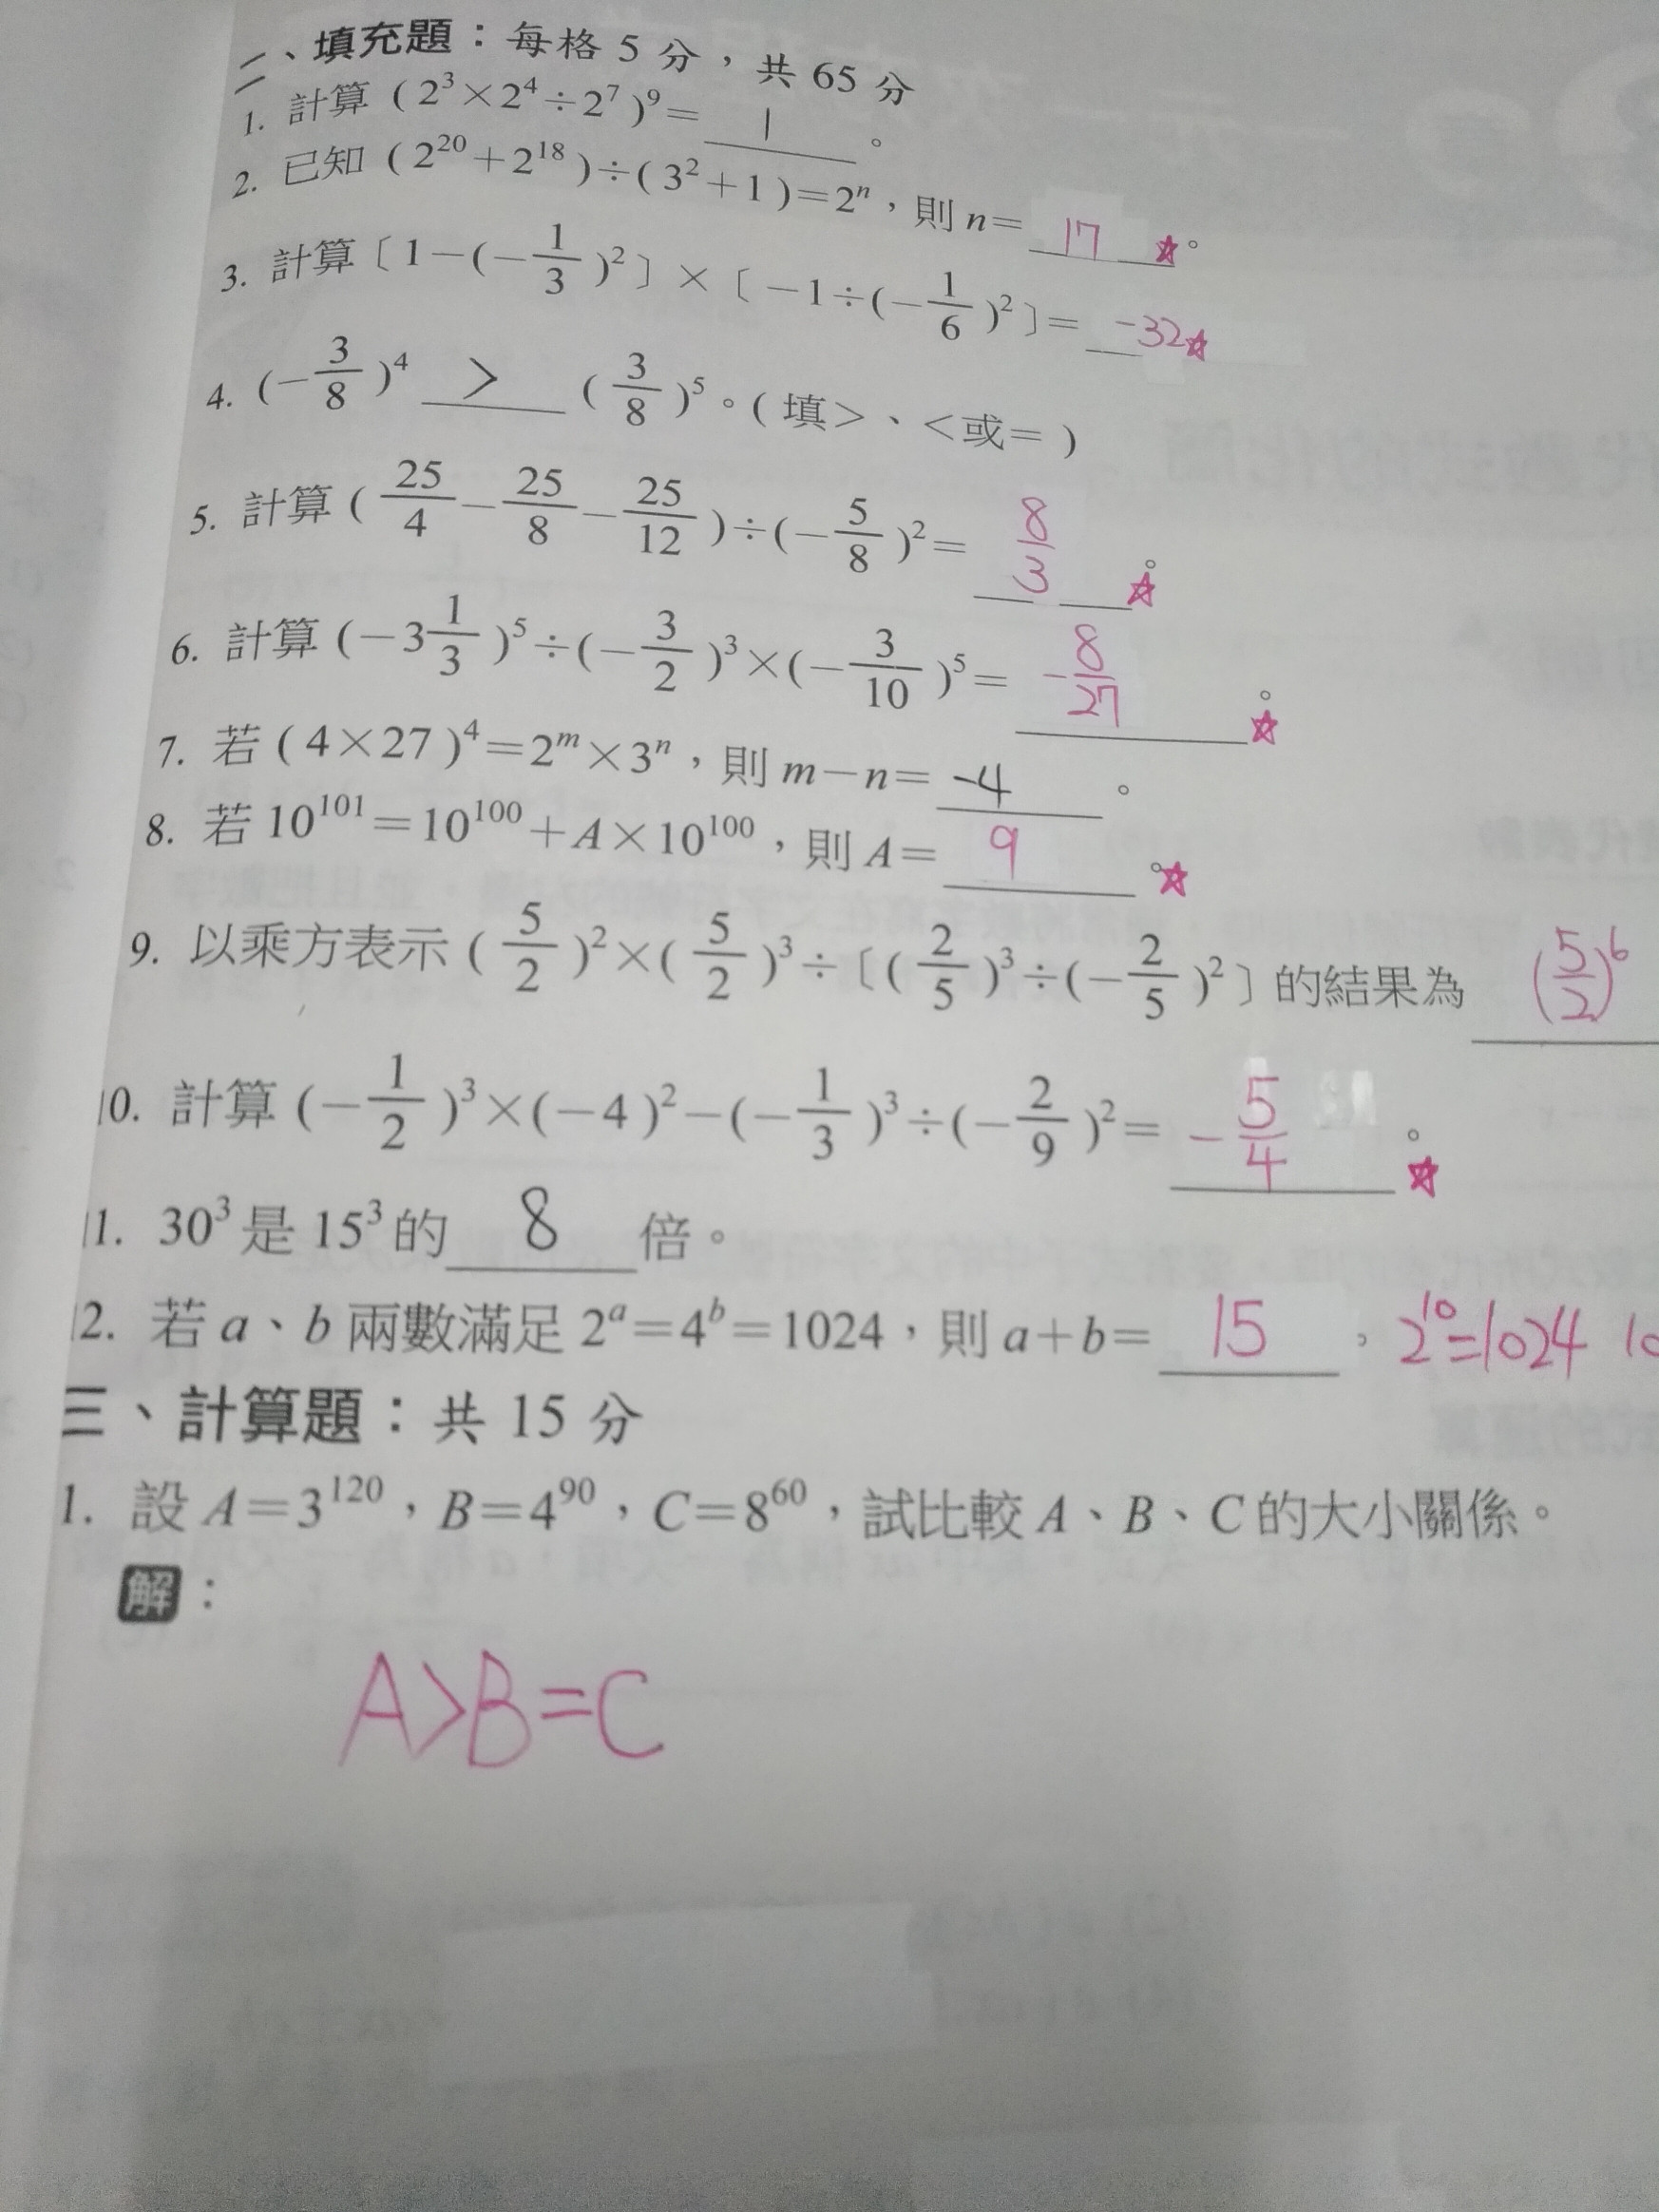 二、填充題：每格 5 分，共 65 分
1. 計算 (2³×2⁴÷2⁷)⁹= 1 。
2. 已知 (2²⁰+2¹⁸)÷(3²+1)=2ⁿ，則 n= 17 ☆。
3. 計算〔1-(-1/3)²〕×〔-1÷(-1/6)²〕= -32☆
4. (-3/8)⁴ > (3/8)⁵。(填>、<或=)
5. 計算 (25/4-25/8-25/12)÷(-5/8)²= 8/3 。☆
6. 計算 (-3 1/3)⁵÷(-3/2)³×(-3/10)⁵= -8/27 。☆
7. 若 (4×27)⁴=2ᵐ×3ⁿ，則 m-n= -4 。
8. 若 10¹⁰¹=10¹⁰⁰+A×10¹⁰⁰，則 A= 9 。☆
9. 以乘方表示 (5/2)²×(5/2)³÷〔(2/5)³÷(-2/5)²〕的結果為 (5/2)⁶
10. 計算 (-1/2)³×(-4)²-(-1/3)³÷(-2/9)²= -5/4 。☆
11. 30³ 是 15³ 的 8 倍。
12. 若 a、b 兩數滿足 2ᵃ=4ᵇ=1024，則 a+b= 15 ， 2¹⁰=1024
三、計算題：共 15 分
1. 設 A=3¹²⁰，B=4⁹⁰，C=8⁶⁰，試比較 A、B、C 的大小關係。
解：
A>B=C